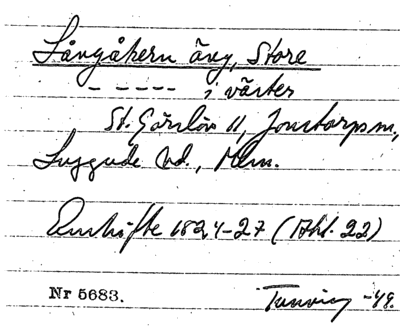 Långåkern äng, Store
- - - - - i väster
St. Görslöv 11, Jonstorps sn,
Luggude hd., Mlm.
Enskifte 1824-27 (Akt. 22)
Nr 5683. -48.